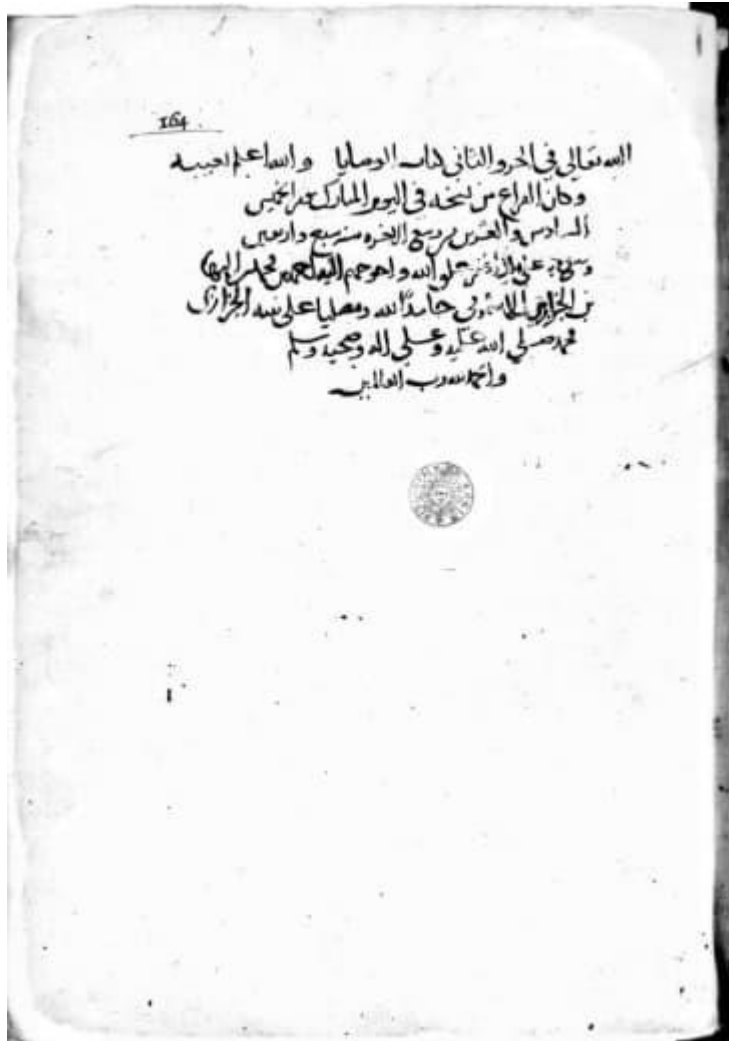 164
الله تعالى في الجزو الثاني كتاب الوصايا والله اعلم بغيبه
وكان الفراغ من نسخه في اليوم المبارك نهر الخميس
السادس والعشرين من ربيع الاخره سنه سبع واربعين
خلق الله واحوجهم اليه احمد بن محمد
بن حامدًا لله ومصليا على نبيه
محمد صلى الله عليه وعلى اله وصحبه وسلم
والحمد لله رب العالمين